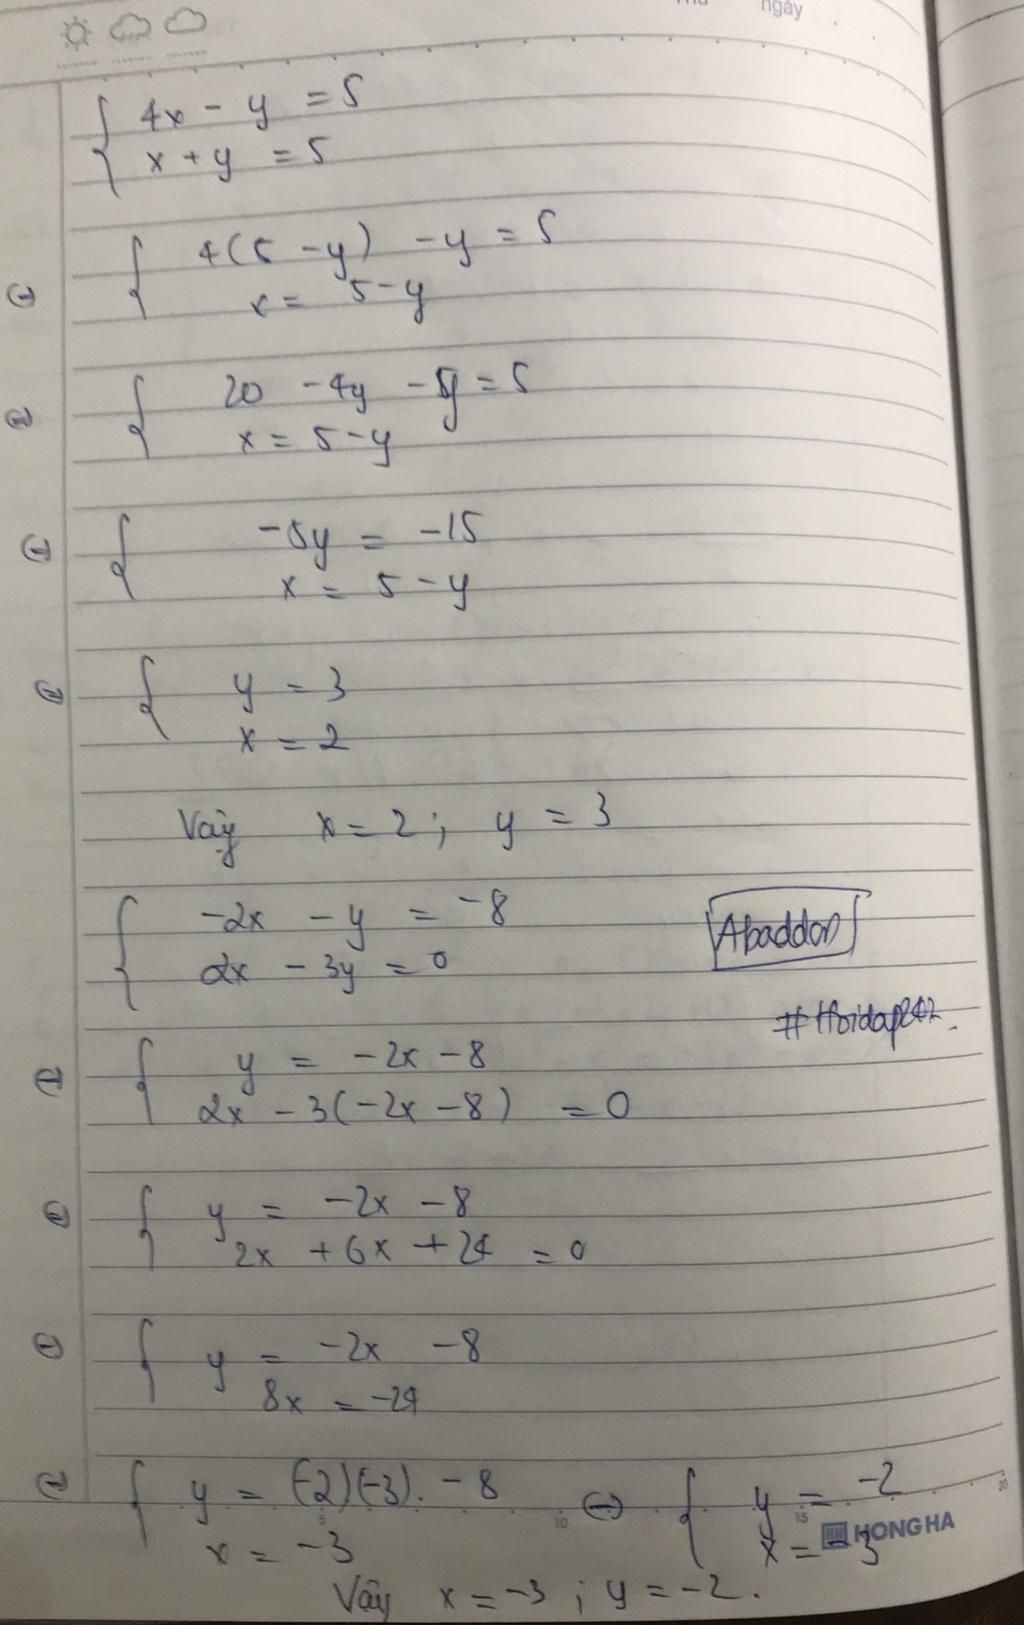 ngày
4x - y = 5
x + y = 5
⇔ 4(5 - y) - y = 5
x = 5 - y
⇔ 20 - 4y - y = 5
x = 5 - y
⇔ -5y = -15
x = 5 - y
⇔ y = 3
x = 2
Vậy x = 2; y = 3
-2x - y = -8
2x - 3y = 0
Abaddon
#Hoidap247.
⇔ y = -2x - 8
2x - 3(-2x - 8) = 0
⇔ y = -2x - 8
2x + 6x + 24 = 0
⇔ y = -2x - 8
8x = -24
⇔ y = (-2)(-3). - 8 ⇔ y = -2
x = -3 x = -3
5 10 15 20
HONG HA
Vậy x = -3; y = -2.